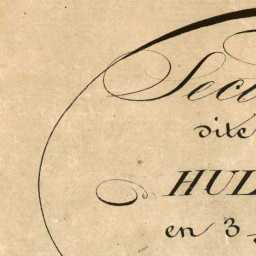 Sec
dite
HUL
en 3